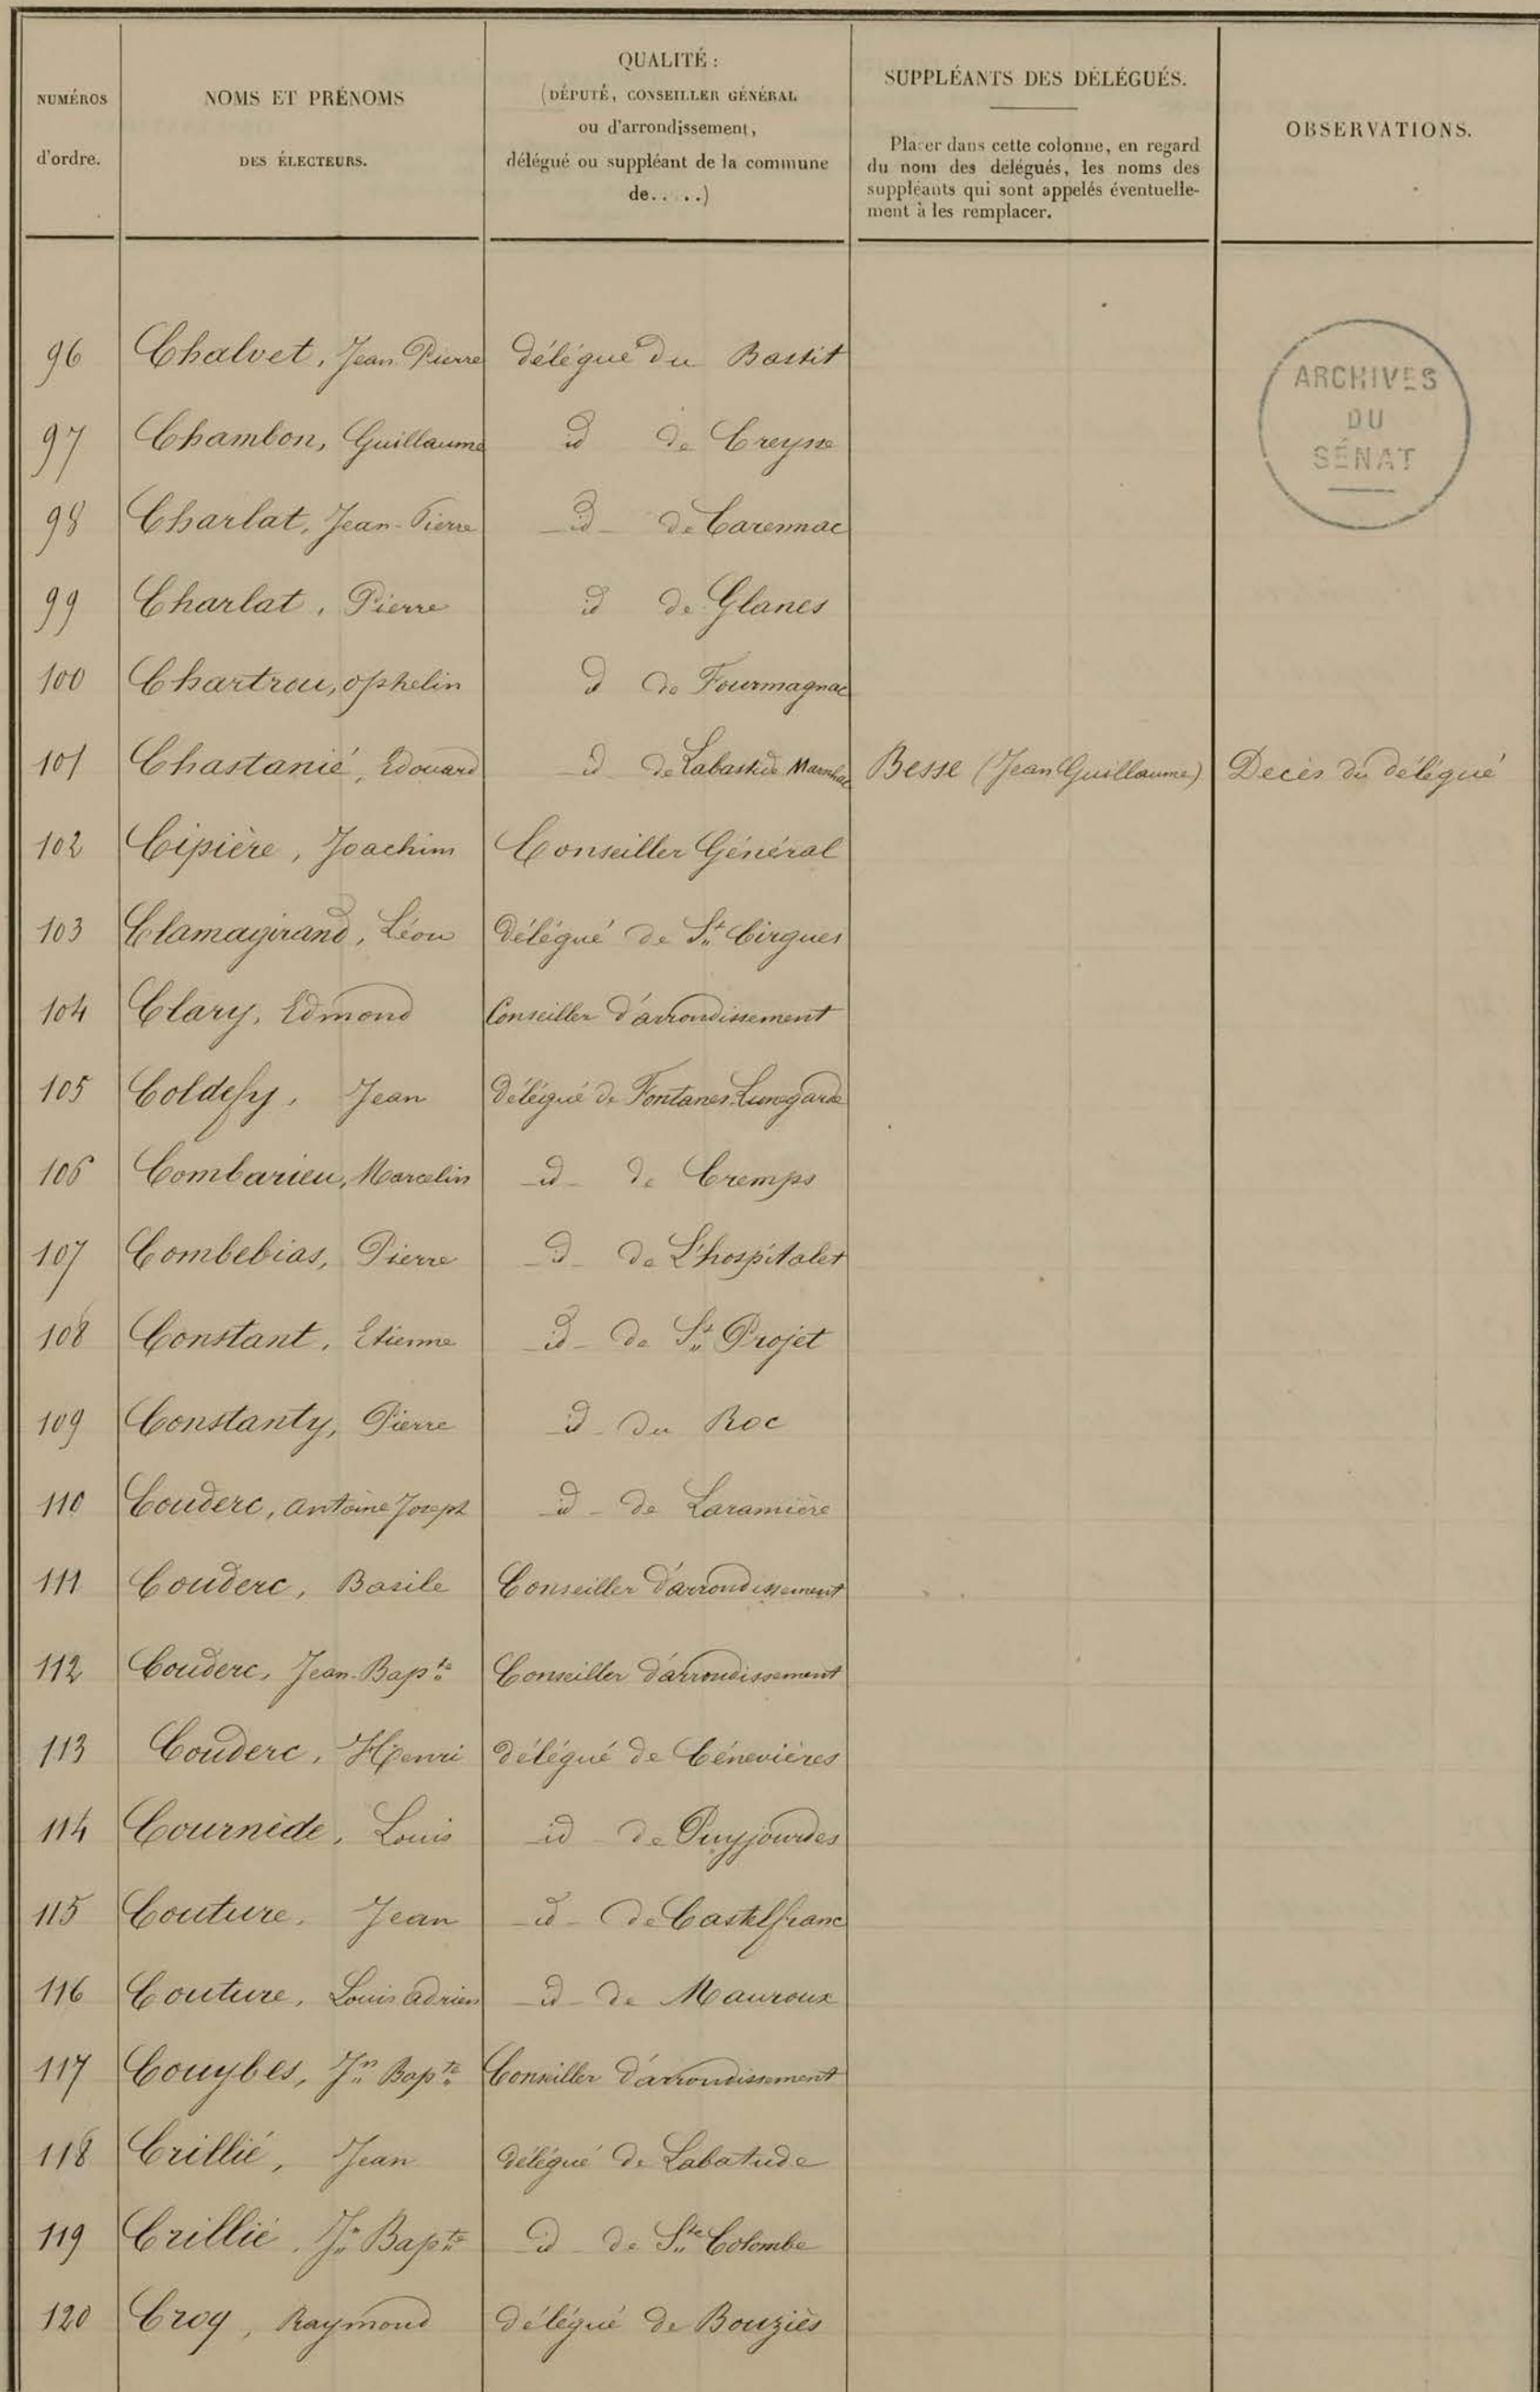 NUMÉROS
d'ordre.
NOMS ET PRÉNOMS
DES ÉLECTEURS.
QUALITÉ :
(DÉPUTÉ, CONSEILLER GÉNÉRAL
ou d'arrondissement,
délégué ou suppléant de la commune
de. . . . .)
SUPPLÉANTS DES DÉLÉGUÉS.
Placer dans cette colonne, en regard
du nom des delégués, les noms des
suppléants qui sont appelés éventuelle-
ment à les remplacer.
OBSERVATIONS.
ARCHIVES
DU
SÉNAT
96 Chalvet, Jean Pierre délégué du Bastit
97 Chambon, Guillaume id de Creysse
98 Charlat, Jean-Pierre - id - de Carennac
99 Charlat, Pierre id de Glanes
100 Chartrou, ophelin id de Fourmagnac
101 Chastanié, Edouard - id de Labastide Marnhac Besse (Jean Guillaume) Decès du délégué
102 Cipière, Joachim Conseiller Général
103 Clamagirand, Léon délégué de St Cirgues
104 Clary, Edmond Conseiller d'arrondissement
105 Coldefy, Jean délégué de Fontanes-Lunegarde
106 Combarieu, Marcelin - id - de Cremps
107 Combebias, Pierre - id - de L'hospitalet
108 Constant, Etienne - id - de St Projet
109 Constanty, Pierre - id - du Roc
110 Couderc, antoine Joseph - id - de Laramière
111 Couderc, Basile Conseiller d'arrondissement
112 Couderc, Jean-Bapte Conseiller d'arrondissement
113 Couderc, Henri délégué de Cénevières
114 Cournède, Louis - id - de Puyjourdes
115 Couture, Jean - id - de Castelfranc
116 Couture, Louis adrien - id - de Mauroux
117 Couybes, Jn Bapte Conseiller d'arrondissement
118 Crillié, Jean délégué de Labatude
119 Crillié, Jn Bapte - id - de Ste Colombe
120 Croy, Raymond délégué de Bouziès